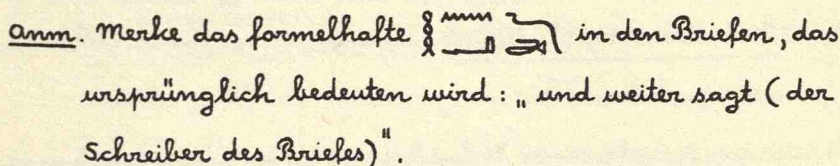 Anm. Merke das formelhafte 𓎛𓈖𓂝𓆓𓂧 in den Briefen, das
ursprünglich bedeuten wird: „und weiter sagt (der
Schreiber des Briefes)".